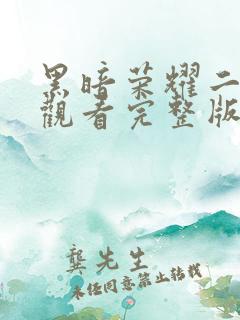 黑暗荣耀二
觀看完整版
龔先生
未经同意禁止转载